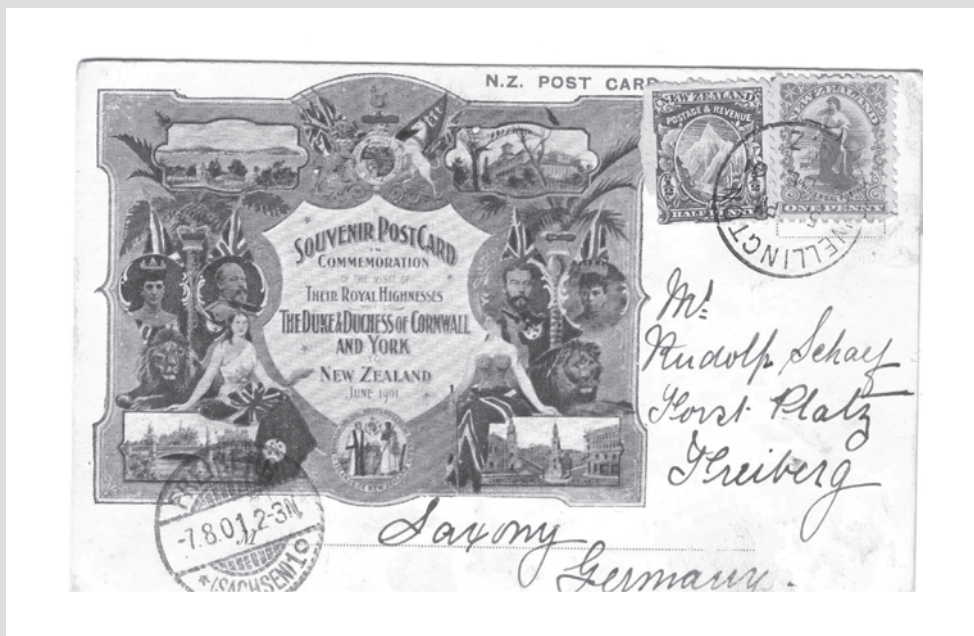 N.Z. POST CARD
NEW ZEALAND
POSTAGE & REVENUE
HALF PENNY
NEW ZEALAND
ONE PENNY
WELLINGT
SOUVENIR POST CARD
IN
COMMEMORATION
OF THE VISIT OF
THEIR ROYAL HIGHNESSES
THE DUKE & DUCHESS OF CORNWALL
AND YORK
TO
NEW ZEALAND
JUNE 1901
Mr
Rudolf Schaf
Horst Platz
Freiberg
Saxony
Germany.
-7.8.01.2-3N
*(SACHSEN)1 o